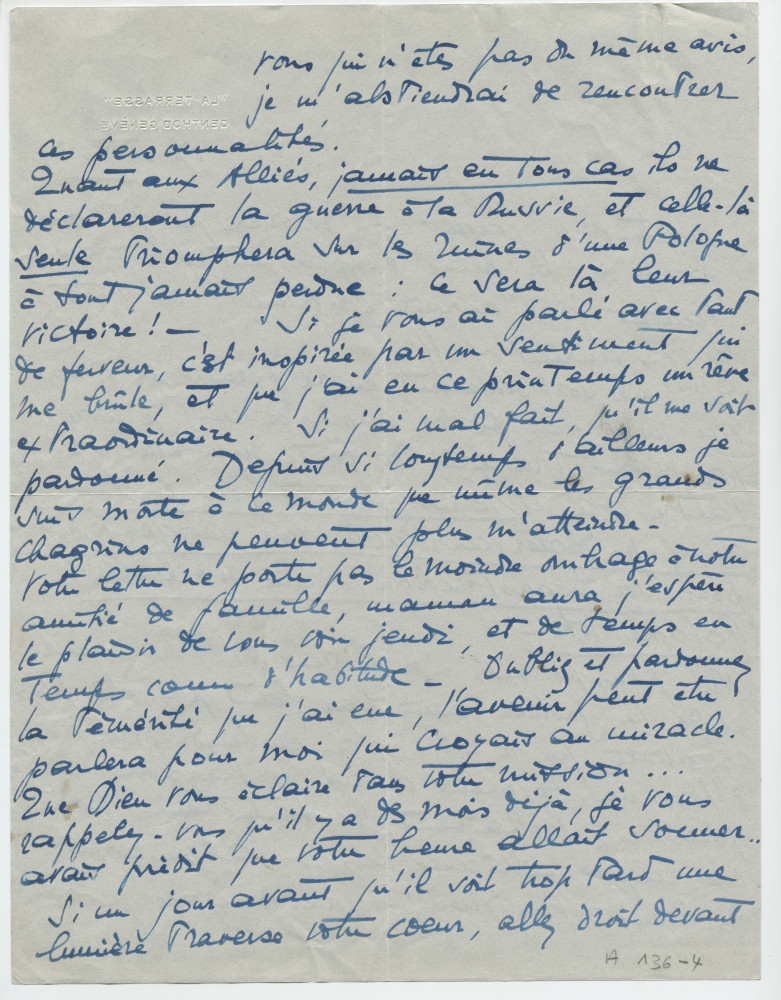 vous qui n'êtes pas du même avis,
je m'abstiendrai de rencontrer
"LA TERRASSE"
GENTHOD GENÈVE
ces personnalités.
Quant aux Alliés, jamais en tous cas ils ne
déclareront la guerre à la Russie, et celle-là
seule triomphera sur les ruines d'une Pologne
à tout jamais perdue : ce sera là leur
victoire ! — Si je vous ai parlé avec tant
de ferveur, c'est inspirée par un sentiment qui
me brûle, et que j'ai eu ce printemps un rêve
extraordinaire. Si j'ai mal fait, qu'il me soit
pardonné. Depuis si longtemps d'ailleurs je
suis morte à ce monde que même les grands
chagrins ne peuvent plus m'atteindre -
Votre lettre ne porte pas le moindre ombrage à notre
amitié de famille, maman aura j'espère
le plaisir de vous voir jeudi, et de temps en
temps comme d'habitude - Oubliez et pardonnez
la témérité que j'ai eue, l'avenir peut être
parlera pour moi qui croyais au miracle.
Que Dieu vous éclaire dans votre mission ...
rappelez-vous qu'il y a des mois déjà, je vous
avais prédit que votre heure allait sonner..
Si un jour avant qu'il soit trop tard une
lumière traverse votre coeur, allez droit devant
A 136-4